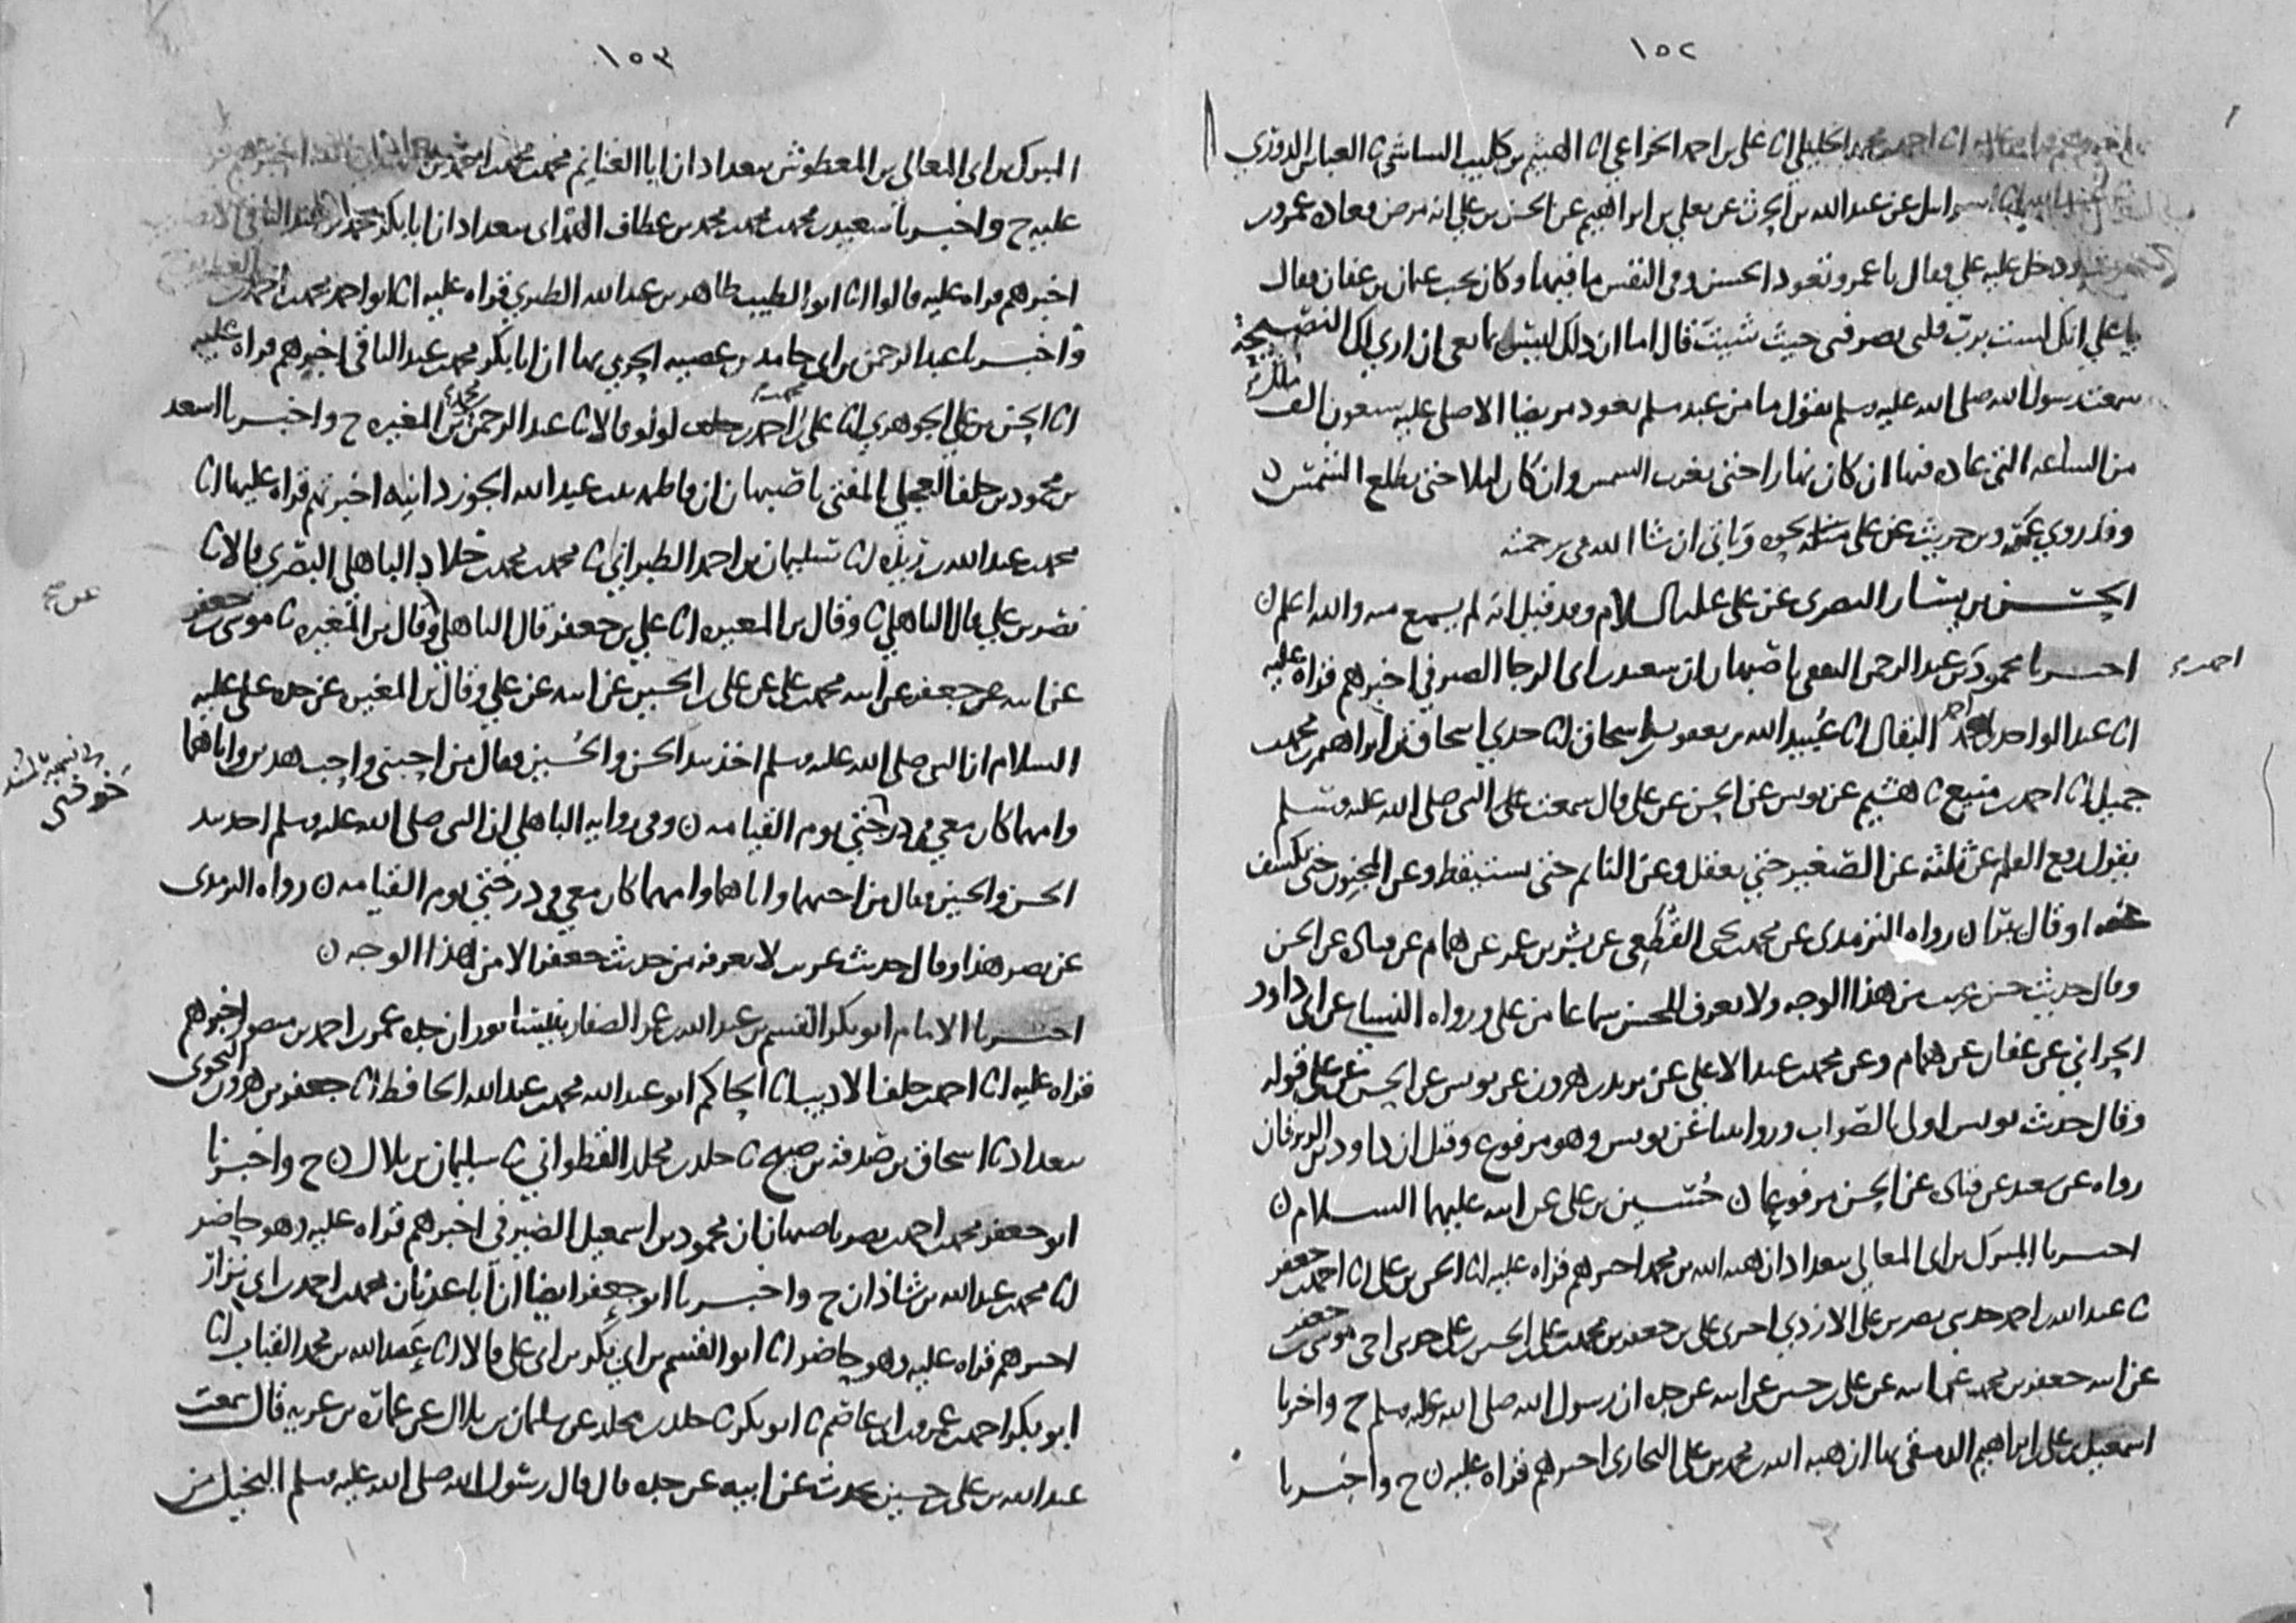 ١٥٢
احمد بن محمد الخليلي انا علي بن احمد الخزاعي انا الهيثم بن كليب الشاشي ثنا العباس الدوري
عن عبد الله بن الحرث عن يعلي بن ابراهيم عن الحسن بن علي انه مرض فعاده عمرو بن
ودخل عليه علي فقال يا عمرو تعود الحسن وفي النفس ما فيها وكان يحب عثمان بن عفان فقال
يا علي انك لست برب قلبي تصرفني حيث شئت قال اما ان ذلك ليس بمانعي ان اري لك النصيحة
سمعت رسول الله صلى الله عليه وسلم يقول ما من عبد مسلم يعود مريضا الا صلى عليه سبعون الف ملك
من الساعه التي عاده فيها ان كان نهارا حتى تغرب الشمس وان كان ليلا حتى تطلع الشمس ن
وقد روي عمرو بن حريث عن علي نحوه وياتي ان شا الله في ترجمته
الحسن بن يسار البصري عن علي عليه السلام وقد قيل انه لم يسمع منه والله اعلم ن
اخبرنا محمود بن احمد بن عبد الرحمن الثقفي باصبهان ان سعيد بن ابي الرجا الصيرفي اخبرهم قراه عليه
انا عبد الواحد بن احمد البقال انا عبيد الله بن يعقوب بن اسحاق انا جدي اسحاق بن ابراهيم بن محمد بن
جميل انا احمد بن منيع ثنا هشيم عن يونس عن الحسن عن علي قال سمعت النبي صلى الله عليه وسلم
يقول رفع القلم عن ثلثة عن الصغير حتى يعقل وعن النائم حتى يستيقظ وعن المجنون حتى يكشف
عنه او قال يبرا ن رواه الترمذي عن محمد بن يحيى القطعي عن بشر بن عمر عن همام عن قتادة عن الحسن
وقال حديث حسن غريب من هذا الوجه ولا يعرف للحسن سماعا من علي ورواه النسائي عن ابي داود
الحراني عن عفان عن همام وعن محمد بن عبد الاعلى عن يزيد بن هرون عن يونس عن الحسن عن علي قوله
وقال حديث يونس اولى بالصواب وروايتنا عن يونس وهو مرفوع وقيل ان داود بن الزبرقان
رواه عن سعيد عن قتادة عن الحسن مرفوعا ن حسين بن علي عن ابيه عليهما السلام ن
اخبرنا المبرك بن ابي المعالي ببغداد ان هبه الله بن محمد اخبرهم قراه عليه انا الحسن بن علي انا احمد بن جعفر
ثنا عبد الله بن احمد حدثني نصر بن علي الازدي اخبرني علي بن جعفر بن محمد بن علي بن الحسين بن علي حدثني اخي موسى بن جعفر
عن ابيه جعفر بن محمد عن ابيه عن علي بن حسين عن ابيه عن جده ان رسول الله صلى الله عليه وسلم ح واخبرنا
اسمعيل بن علي بن ابراهيم الدمشقي بها ان هبه الله بن محمد بن علي البخاري اخبرهم قراه عليه ن ح واخبرنا
١٥٣
المبرك بن ابي المعالي بن المعطوش ببغداد ان ابا الغنائم محمد بن محمد بن احمد بن
عليه ح واخبرنا سعيد بن محمد بن محمد بن محمد بن عطاف الهمداني ببغداد ان ابا بكر محمد بن عبد الباقي
اخبرهم قراه عليه قالوا انا ابو الطيب طاهر بن عبد الله الطبري قراه عليه انا ابو احمد محمد بن احمد بن
واخبرنا عبد الرحمن بن ابي حامد بن عصيه الحربي بها ان ابا بكر محمد بن عبد الباقي اخبرهم قراه عليه
انا الحسن بن علي الجوهري انا علي بن محمد بن احمد بن لولو قالا ثنا عبد الرحمن بن محمد بن المغيره ح واخبرنا اسعد
بن محمود بن خلف العجلي المفتي باصبهان ان فاطمه بنت عبد الله الجوزدانيه اخبرتهم قراه عليها انا
محمد بن عبد الله بن ريذه انا سليمان بن احمد الطبراني ثنا محمد بن محمد بن خلاد الباهلي البصري قالا ثنا
نصر بن علي قال الباهلي ثنا وقال بن المغيره انا علي بن جعفر قال الباهلي وقال بن المغيره ثنا موسى بن جعفر
عن ابيه عن جعفر عن ابيه محمد بن علي عن علي بن الحسين عن ابيه عن علي وقال بن المغيره عن جده علي عليه
السلام ان النبي صلى الله عليه وسلم اخذ بيد الحسن والحسين فقال من احبني واحب هذين واباهما
وامهما كان معي في درجتي يوم القيامه ن وفي روايه الباهلي ان النبي صلى الله عليه وسلم اخذ بيد
الحسن والحسين فقال من احبهما واباهما وامهما كان معي في درجتي يوم القيامه ن رواه الترمذي
عن نصر هذا وقال حديث غريب لا نعرفه من حديث جعفر الا من هذا الوجه ن
اخبرنا الامام ابو بكر القسم بن عبد الله بن عمر الصفار بنيسابور ان جده عمر بن احمد بن منصور اخبرهم
قراه عليه انا احمد بن خلف الاديب انا الحاكم ابو عبد الله محمد بن عبد الله الحافظ انا جعفر بن هرون النحوي
ببغداد ثنا اسحاق بن صدقه بن صبيح ثنا خلد بن مخلد القطواني ثنا سليمان بن بلال ن ح واخبرنا
ابو جعفر محمد بن احمد بن نصر باصبهان ان محمود بن اسمعيل الصيرفي اخبرهم قراه عليه وهو حاضر
انا محمد بن عبد الله بن شاذان ح واخبرنا ابو جعفر ايضا ان ابا عدنان محمد بن احمد بن ابي نزار
اخبرهم قراه عليه وهو حاضر انا ابو القسم بن ابي بكر بن ابي علي قالا انا عبد الله بن محمد القباب انا
ابو بكر احمد بن عمرو بن ابي عاصم ثنا ابو بكر ثنا خلد بن مخلد عن سليمان بن بلال عن عمارة بن غزيه قال سمعت
عبد الله بن علي بن حسين يحدث عن ابيه عن جده قال قال رسول الله صلى الله عليه وسلم البخيل من